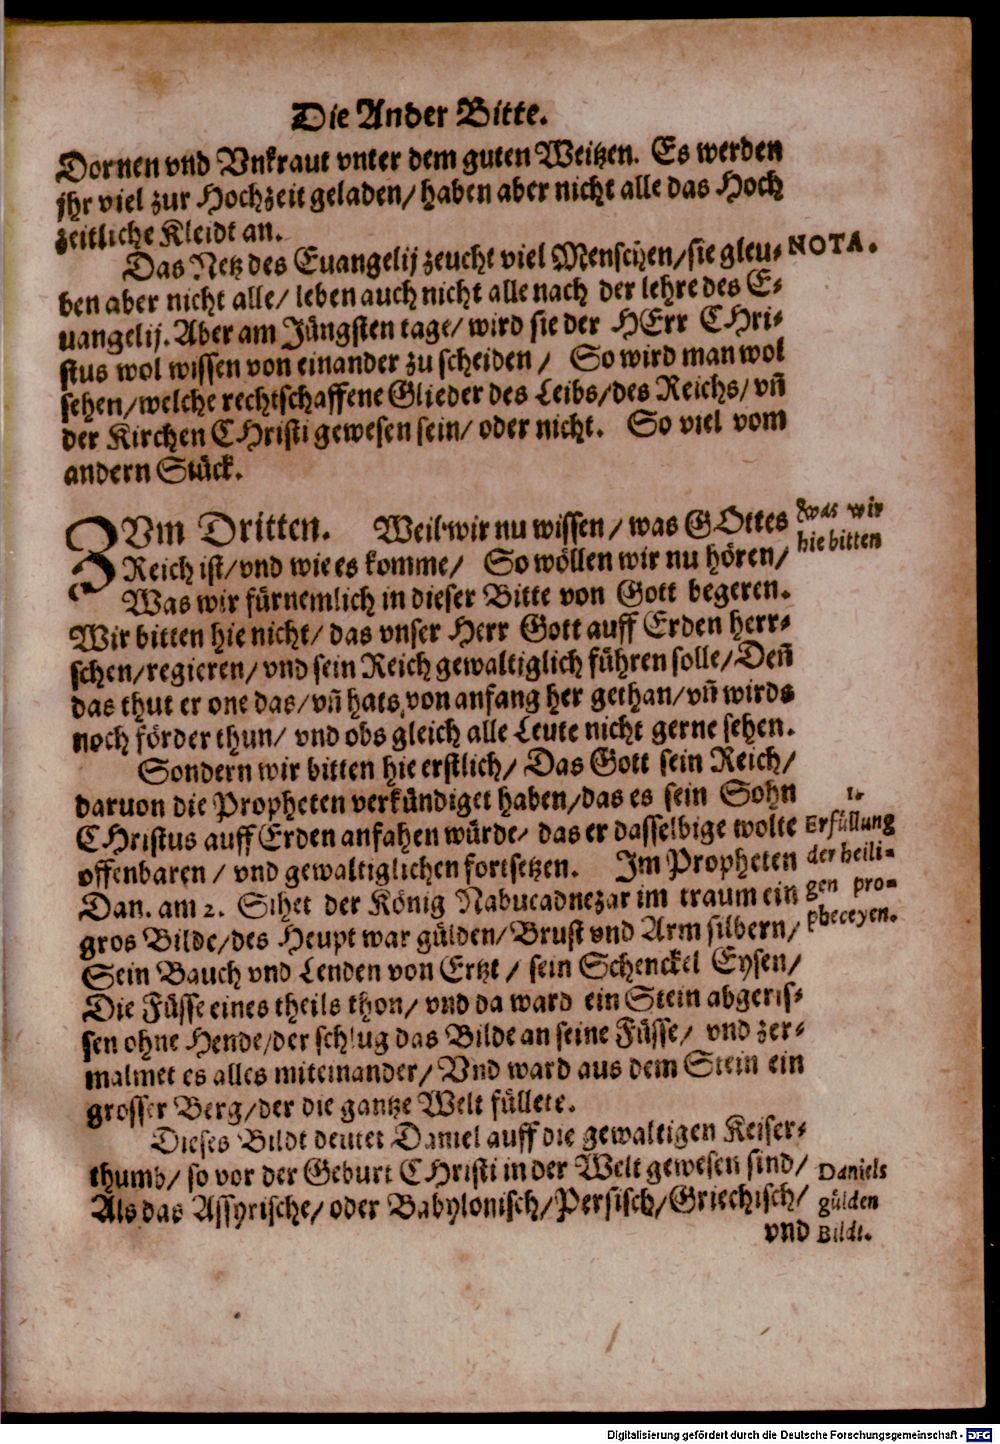 Die Ander Bitte.
Dornen vnd Vnkraut vnter dem guten Weitzen. Es werden
jhr viel zur Hochzeit geladen/ haben aber nicht alle das Hoch
zeitliche Kleidt an.
Das Netz des Euangelij zeucht viel Menschen/ sie gleu-
NOTA.
ben aber nicht alle/ leben auch nicht alle nach der lehre des E-
uangelij. Aber am Jüngsten tage/ wird sie der HErr CHri-
stus wol wissen von einander zu scheiden/ So wird man wol
sehen/ welche rechtschaffene Glieder des Leibs/ des Reichs/ vñ
der Kirchen CHristi gewesen sein/ oder nicht. So viel vom
andern Stück.
ZVm Dritten. Weil wir nu wissen/ was GOttes
Reich ist/ vnd wie es komme/ So wöllen wir nu hören/
Was wir
hie bitten
Was wir fürnemlich in dieser Bitte von Gott begeren.
Wir bitten hie nicht/ das vnser Herr Gott auff Erden herr-
schen/ regieren/ vnd sein Reich gewaltiglich führen solle/ Deñ
das thut er one das/ vñ hats von anfang her gethan/ vñ wirds
noch förder thun/ vnd obs gleich alle Leute nicht gerne sehen.
Sondern wir bitten hie erstlich/ Das Gott sein Reich/
daruon die Propheten verkündiget haben/ das es sein Sohn
CHristus auff Erden anfahen würde/ das er dasselbige wolte
offenbaren/ vnd gewaltiglichen fortsetzen. Im Propheten
1.
Erfüllung
der heili-
gen pro-
pheceyen.
Dan. am 2. Sihet der König Nabucadnezar im traum ein
gros Bilde/ des Heupt war gülden/ Brust vnd Arm silbern/
Sein Bauch vnd Lenden von Ertzt/ sein Schenckel Eysen/
Die Füsse eines theils thon/ vnd da ward ein Stein abgeris-
sen ohne Hende/ der schlug das Bilde an seine Füsse/ vnd zer-
malmet es alles miteinander/ Vnd ward aus dem Stein ein
grosser Berg/ der die gantze Welt füllete.
Dieses Bildt deutet Daniel auff die gewaltigen Keiser-
thumb/ so vor der Geburt CHristi in der Welt gewesen sind/
Als das Assyrische/ oder Babylonisch/ Persisch/ Griechisch/
Daniels
gülden
Bildt.
vnd
Digitalisierung gefördert durch die Deutsche Forschungsgemeinschaft - DFG